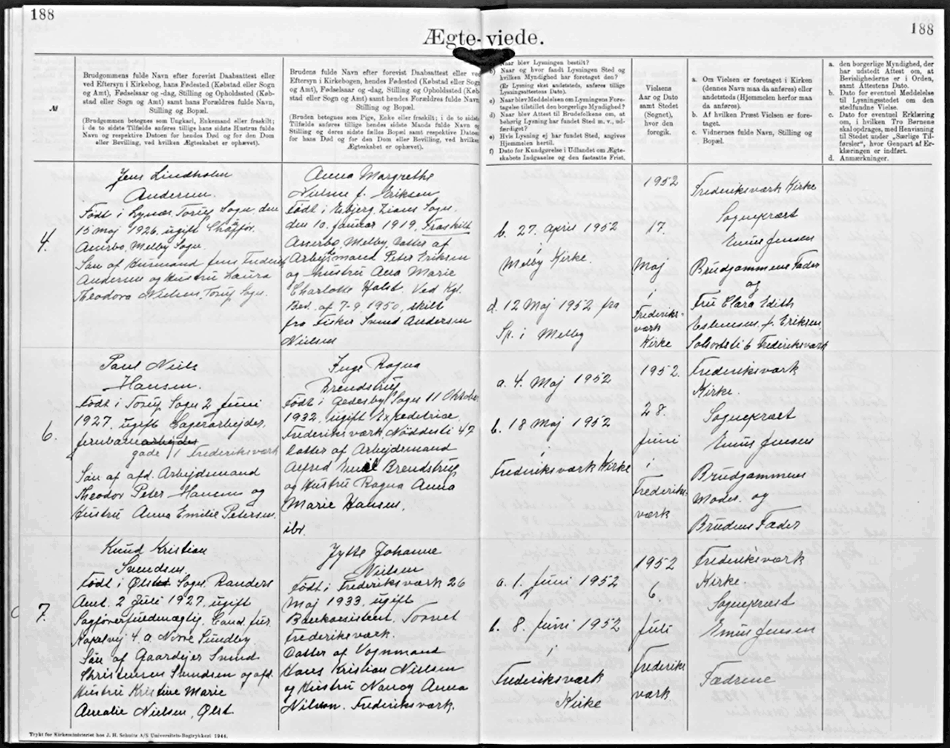 188
188
Ægte-viede.
№
Brudgommens fulde Navn efter forevist Daabsattest eller
ved Eftersyn i Kirkebog, hans Fødested (Købstad eller Sogn
og Amt), Fødselsaar og -dag, Stilling og Opholdssted (Køb-
stad eller Sogn og Amt) samt hans Forældres fulde Navn,
Stilling og Bopæl.
(Brudgommen betegnes som Ungkarl, Enkemand eller fraskilt;
i de to sidste Tilfælde anføres tillige hans sidste Hustrus fulde
Navn og respektive Datoen for hendes Død og for den Dom
eller Bevilling, ved hvilken Ægteskabet er ophævet).
Brudens fulde Navn efter forevist Daabsattest eller ved
Eftersyn i Kirkebogen, hendes Fødested (Købstad eller Sogn
og Amt), Fødselsaar og -dag, Stilling og Opholdssted (Køb-
stad eller Sogn og Amt) samt hendes Forældres fulde Navn,
Stilling og Bopæl.
(Bruden betegnes som Pige, Enke eller fraskilt; i de to sidste
Tilfælde anføres tillige hendes sidste Mands fulde Navn
og Stilling og deres sidste fælles Bopæl samt respektive Datoen
for hans Død og for den Dom eller Bevilling, ved hvilken
Ægteskabet er ophævet).
Naar blev Lysningen bestilt?
b) Naar og hvor fandt Lysningen Sted og
hvilken Myndighed har foretaget den?
(Er Lysning sket andetsteds, anføres tillige
Lysningsattestens Dato).
c) Naar blev Meddelelsen om Lysningens Fore-
tagelse tilstillet den borgerlige Myndighed?
d) Naar blev Attest til Brudefolkene om, at
behørig Lysning har fundet Sted m. v., ud-
færdiget?
e) Hvis Lysning ej har fundet Sted, angives
Hjemmelen hertil.
f) Dato for Kundgørelse i Udlandet om Ægte-
skabets Indgaaelse og den fastsatte Frist.
Vielsens
Aar og Dato
samt Stedet
(Sognet),
hvor den
foregik.
a. Om Vielsen er foretaget i Kirken
(dennes Navn maa da anføres) eller
andetsteds (Hjemmelen herfor maa
da anføres).
b. Af hvilken Præst Vielsen er fore-
taget.
c. Vidnernes fulde Navn, Stilling og
Bopæl.
a. den borgerlige Myndighed, der
har udstedt Attest om, at
Bevislighederne er i Orden,
samt Attestens Dato.
b. Dato for eventuel Meddelelse
til Lysningsstedet om den
stedfundne Vielse.
c. Dato for eventuel Erklæring
om, i hvilken Tro Børnene
skal opdrages, med Henvisning
til Stedet under „Særlige Til-
førsler“, hvor Genpart af Er-
klæringen er indført.
d. Anmærkninger.
4.
Jens Lindholm
Andersen.
Født i Lynæs Torup Sogn, den
15 Maj 1926, ugift Chauffør.
Amsbo, Melby Sogn.
Søn af Husmand Jens Frederik
Andersen og Hustru Laura
Theodora Nielsen, Torup Sogn.
Anna Margrethe
Nielsen f. Eriksen
Født i Esbjerg, Zions Sogn.
den 10. Januar 1919, Fraskilt
Amsbo, Melby, Datter af
Arbejdsmand Peter Eriksen
og Hustru Ana Marie
Charlotte Holst. Ved Kgl
Bev. af 7-9 1950, skilt
fra Fisker Svend Andersen
Nielsen
b. 27. April 1952
i
Melby Kirke.
d. 12 Maj 1952 fra
Sp. i Melby
1952
17.
Maj
i
Frederiks-
værk
Kirke
Frederiksværk Kirke
Sognepræst
Emius Jensen
Brudgommens Fader
og
Fru Clara Edith
f. Eriksen
Frederiksværk
6.
Paul Niels
Hansen.
Født i Torup Sogn 2 Juni
1927, ugift Lagerarbejder.
Jernbanearbejder
gade 11 Frederiksværk
Søn af afd. Arbejdsmand
Theodor Peter Hansen og
Hustru Anna Emilie Petersen.
Inge Ragna
Brendstrup
Født i Aadesby Sogn 11 Oktober
1932, ugift
Frederiksværk, Nøddesti 47
Datter af Arbejdsmand
Alfred Emil Brendstrup
og Hustru Ragna Anna
Marie Hansen,
ibd.
a. 4. Maj 1952
b. 18 Maj 1952
i
Frederiksværk Kirke
1952.
28.
Juni
i
Frederiks-
værk
Frederiksværk
Kirke.
Sognepræst
Emius Jensen
Brudgommens
Moder og
Brudens Fader
7.
Knud Kristian
Svendsen,
Født i Ølst Sogn, Randers
Amt. 2 Juli 1927, ugift
Sagførerfuldmægtig, Cand. jur
4. a Nørre Sundby
Søn af Gaardejer Svend
Christensen Svendsen og afd.
Hustru Kristine Marie
Amalie Nielsen, Ølst
Jytte Johanne
Nielsen
Født i Frederiksværk 26
Maj 1933, ugift
Bankassistent, Torvet
Frederiksværk.
Datter af Vognmand
Hans Kristian Nielsen
og Hustru Nancy Anna
Nilsson. Frederiksværk.
a. 1. Juni 1952
b. 8. Juni 1952
i
Frederiksværk
Kirke
1952
6.
Juli
i
Frederiks
værk
Frederiksværk
Kirke.
Sognepræst
Emius Jensen
Fædrene
Trykt for Kirkeministeriet hos J. H. Schultz A/S Universitets-Bogtrykkeri 1944.